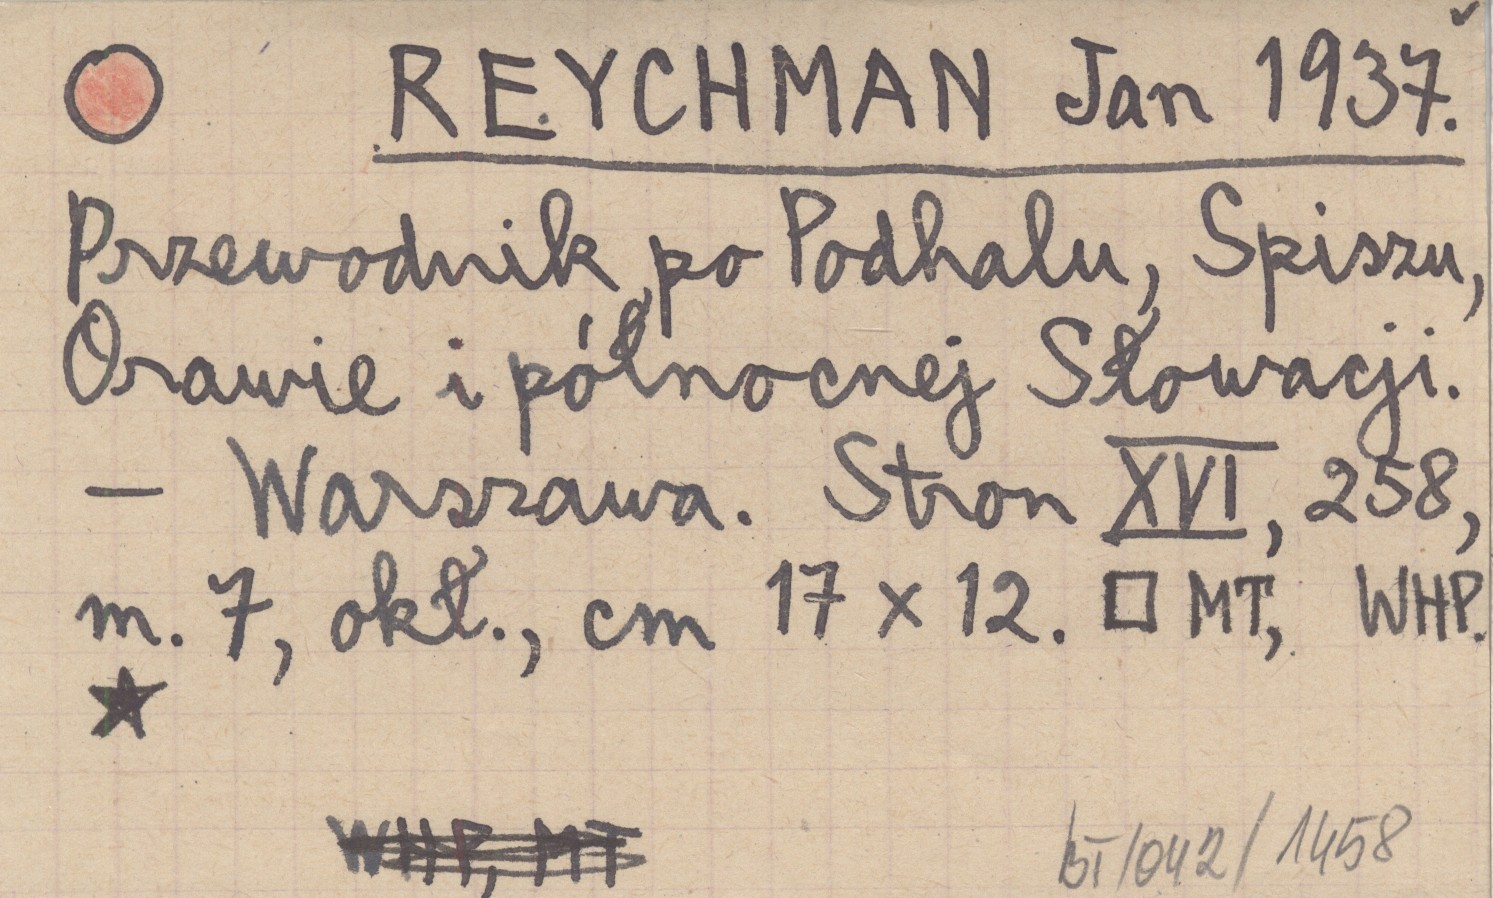 REYCHMAN Jan 1937.
Przewodnik po Podhalu, Spiszu,
Orawie i północnej Słowacji.
— Warszawa. Stron XVI, 258,
m. 7, okł., cm 17 x 12. □ MT, WHP.
★
WHP, MT
bT/042/1458